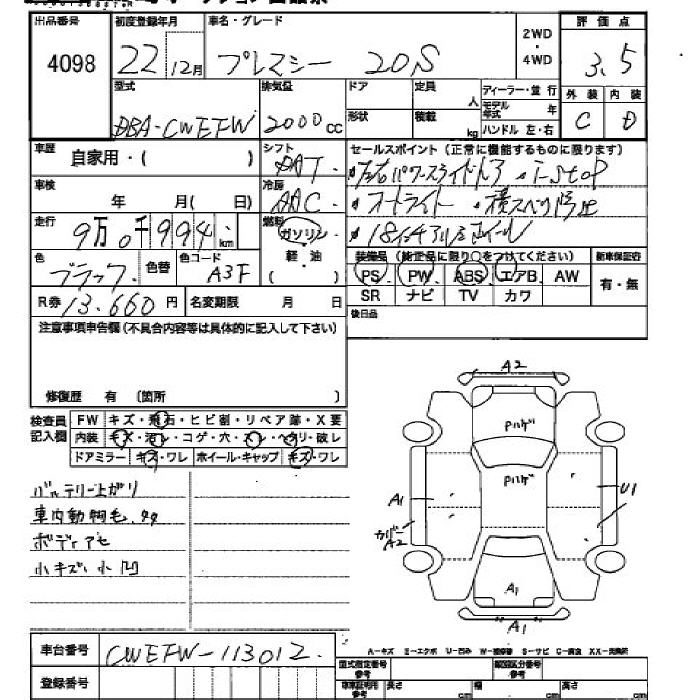 出品番号
4098
初度登録年月
22 12月
車名・グレード
プレマシー 20S
2WD
・
4WD
評価点
3.5
型式
DBA-CWEFW
排気量
2000cc
ドア
定員
人
形状
積載
kg
ディーラー・並行
モデル年式 年
ハンドル 左・右
外装
内装
C
D
車歴
自家用・( )
シフト
DAT
セールスポイント (正常に機能するものに限ります)
左右パワースライドドア ・i-stop
・オートライト ・横スベリ防止
・18インチアルミホイール
車検
年 月( 日)
冷房
AAC
走行
9万0千994km
燃料
ガソリン
軽・油
( )
色
ブラック
色替
色コード
A3F
装備品 (純正品に限り○をつけてください)
新車保証書
PS PW ABS エアB AW
有・無
SR ナビ TV カワ
R券 13.660円
名変期限 月 日
後日品
注意事項申告欄(不具合内容等は具体的に記入して下さい)
修復歴 有 (箇所 )
検査員記入欄
FW キズ・飛石・ヒビ割・リペア跡・X要
内装 キズ・汚レ・コゲ・穴・スレ・ヘタリ・破レ
ドアミラー キズ・ワレ ホイール・キャップ キズ・ワレ
バッテリー上がり
車内動物毛
ボディアセ
小キズ 小凹
A2
Pハゲ
Pハゲ
A1
カバー A2
U1
A1
A1
車台番号
CWEFW-113012
登録番号
A-キズ E-エクボ U-凹み W-補修跡 S-サビ C-腐食 XX-交換済
型式指定番号
参考
類別区分番号
参考
参考
長さ cm
幅 cm
高さ cm